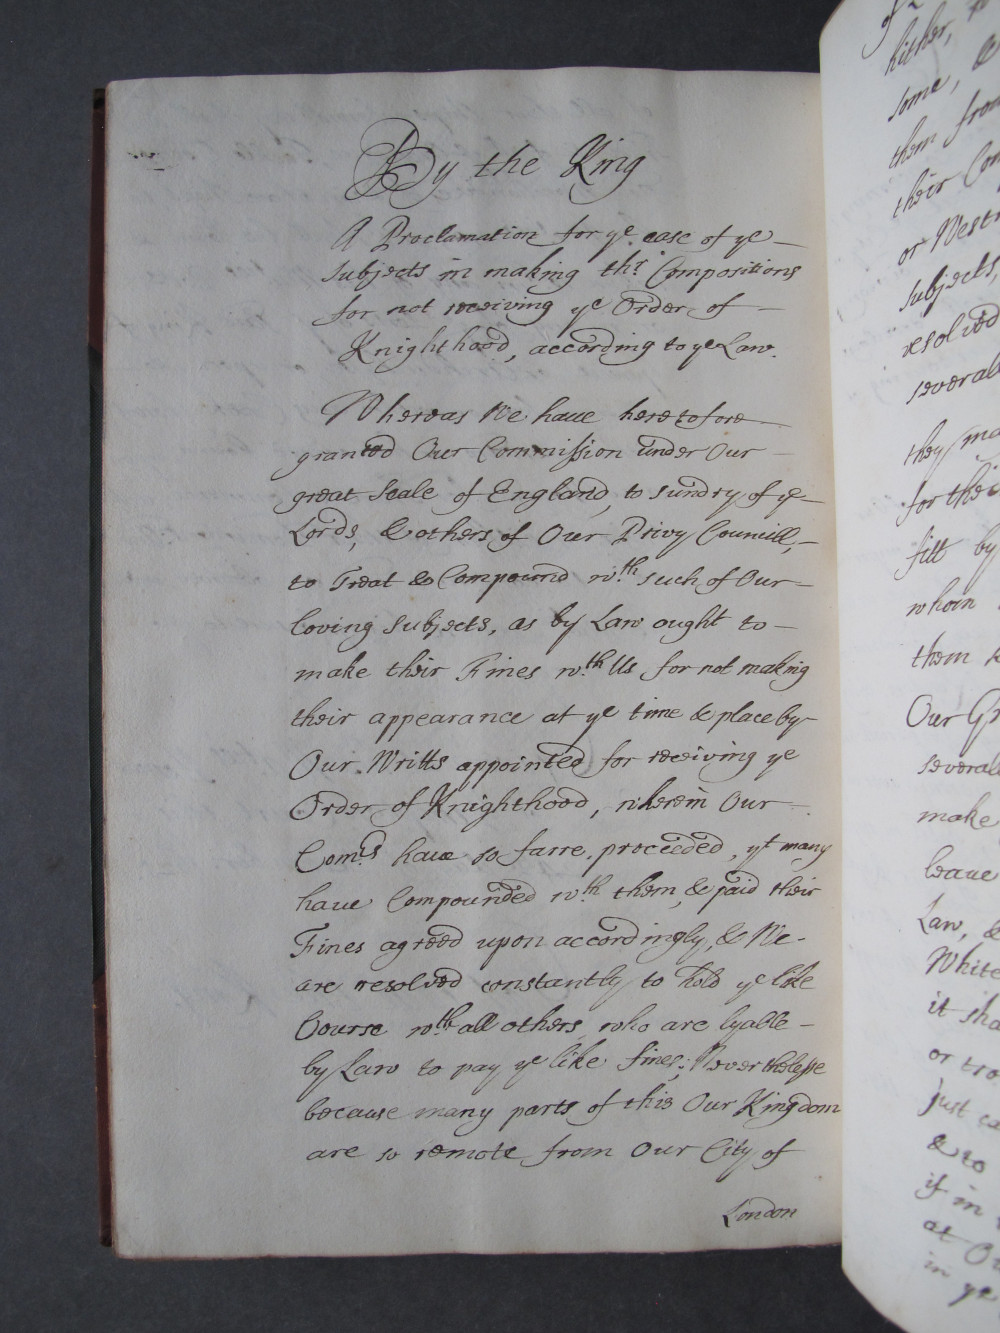 By the King
A Proclamation for ye ease of ye
Subjects in making thr Compositions
for not receiving ye Order of
Knighthood, according to ye Law.
Whereas We have heretofore
granted Our Commission under Our
great Seale of England, to sundry of ye
Lords, & others of Our Privy Councill,
to Treat & Compound wth such of Our
loving Subjects, as by Law ought to
make their Fines wth Us for not making
their appearance at ye time & place by
Our Writts appointed for receiving ye
Order of Knighthood, wherein Our
Comrs have so farre proceeded, yt many
have Compounded wth them, & paid their
Fines agreed upon accordingly, & We
are resolved constantly to hold ye like
Course wth all others who are lyable
by Law to pay ye like fines; Neverthelesse
because many parts of this Our Kingdom
are so remote from Our City of
London
hither,
some, &
them from
their Com
or Westm
subjects,
resolved
severall
they ma
for the
fitt by
whom
them
Our Gr
severall
make
leave
Law, &
White
it sha
or tro
just ca
& to
if in
at Ou
in ye